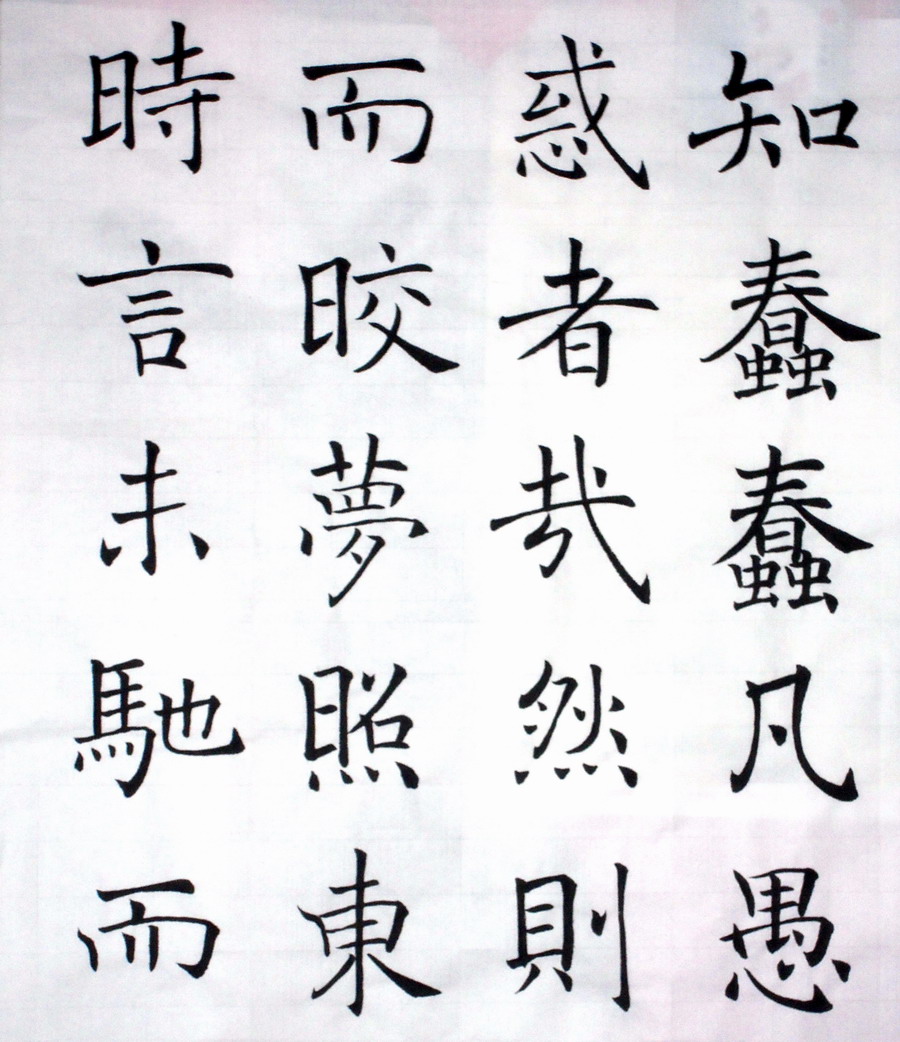 知蠢蠢凡愚
惑者哉然則
而晈夢照東
時言未馳而